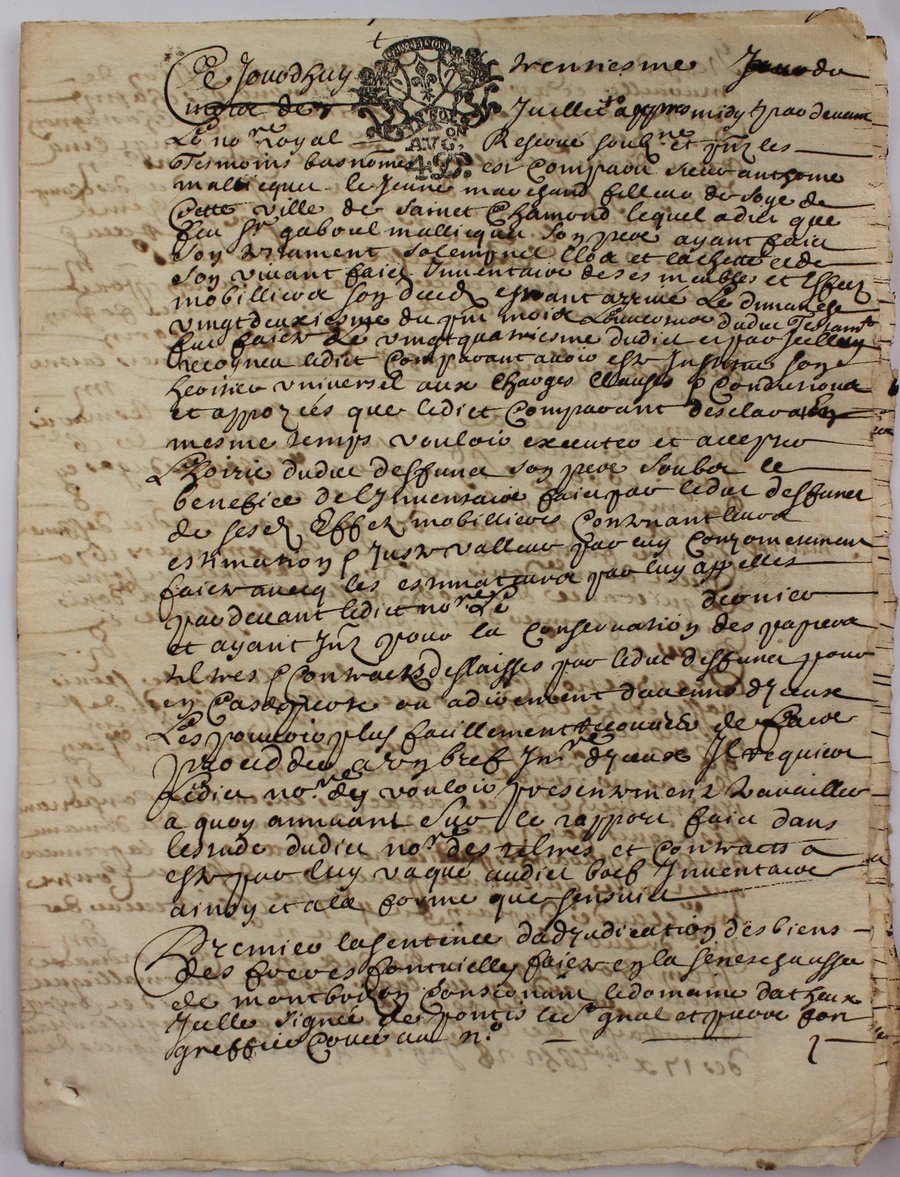 Ce Jourdhuy trentiesme Jour du
mois de Juillet appres midy pardevant
Le no.re royal Reservé soub.ne et p.nt les
Tesmoins bas nomes est comparu sieur anthoine
mallicquet le Jeune marchand filleur de soye de
Cette ville de sainct Chamond lequel a dict que
feu Sr gaboul mallicquet son pere ayant faict
son testament solempnel clos et cachetté et de
son vivant faict Inventaire de ses meubles et Effectz
mobilliers son deceds estant arrivé Le dimanche
vingt deuxiesme du p.nt mois Louverture dudict Testam.t
fut faicte Le vingt quatriesme dudict et par Icelluy
recogneu ledict Comparant avoir esté Institué son
heritier universel aux charges clauses & Conditions
et apposées que ledict Comparant desclara En
mesme temps vouloir executer et accepter
L'hoirie dudict deffunct son pere soubz le
benefice de l'Inventaire faict par ledict deffunct
de sesd. Effetz mobilliers Contenant leurs
estimation & Juste valleur par luy conjoinctement
faicte avecq les estimateurs par luy appelles
pardevant ledict no.re Le dernier
et ayant Jnt. pour la conservation des papiers
tiltres & Contracts deslaisses par ledict deffunct pour
en Cas de perte ou adirement d'aucuns d'Jceux
Les pouvoir plus facillement recouvrer de faire
proceder a un bref Inv.re d'Jceux Il requiert
Ledict no.re d'y vouloir presentement travailler
a quoy annuant sur le rapport faict dans
lestude dudict no.re des tiltres et contracts a
esté par luy vaqué audict bref Inventaire
ainsy et a la forme que sensuict
Premier la sentence dadjudication des biens
des freres fontvielle faicte en la seneschaussee
de montbrison Concernant le domaine d
Jcelle signée de pontis lie.t gnal et
greffier Cottée au n.o 1
AVG.
4 9 D.